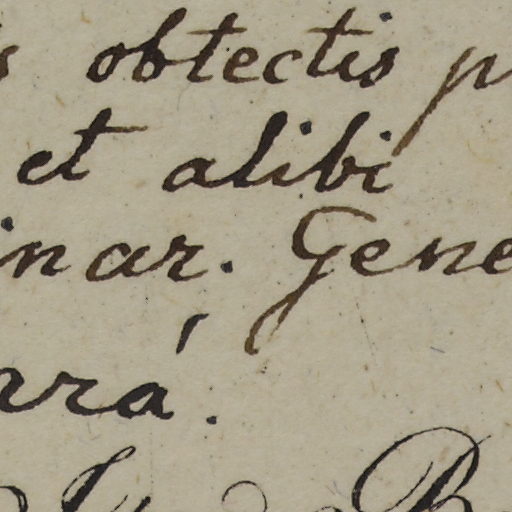 s obtectis p
et alibi
inar. Gene
rrá.